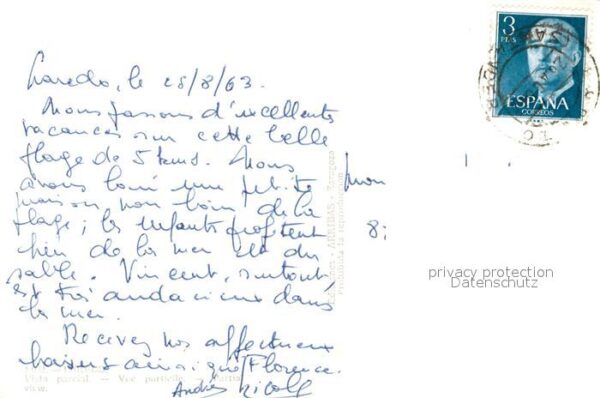 Laredo, le 28/8/63.
Nous passons d'excellentes
vacances sur cette belle
plage de 5 kms. Nous
avons loué une petite
maison, non loin de la
plage; les enfants profitent
bien de la mer et du
sable. Vincent, surtout,
est très audacieux dans
la mer.
Recevez nos affectueux
baisers ainsi que Florence.
André Nicole
Vista parcial. — Vue partielle. — Partial
view.
ARRIBAS - Zaragoza
Prohibida la reproducción
3
PTAS
ESPAÑA
CORREOS
privacy protection
Datenschutz